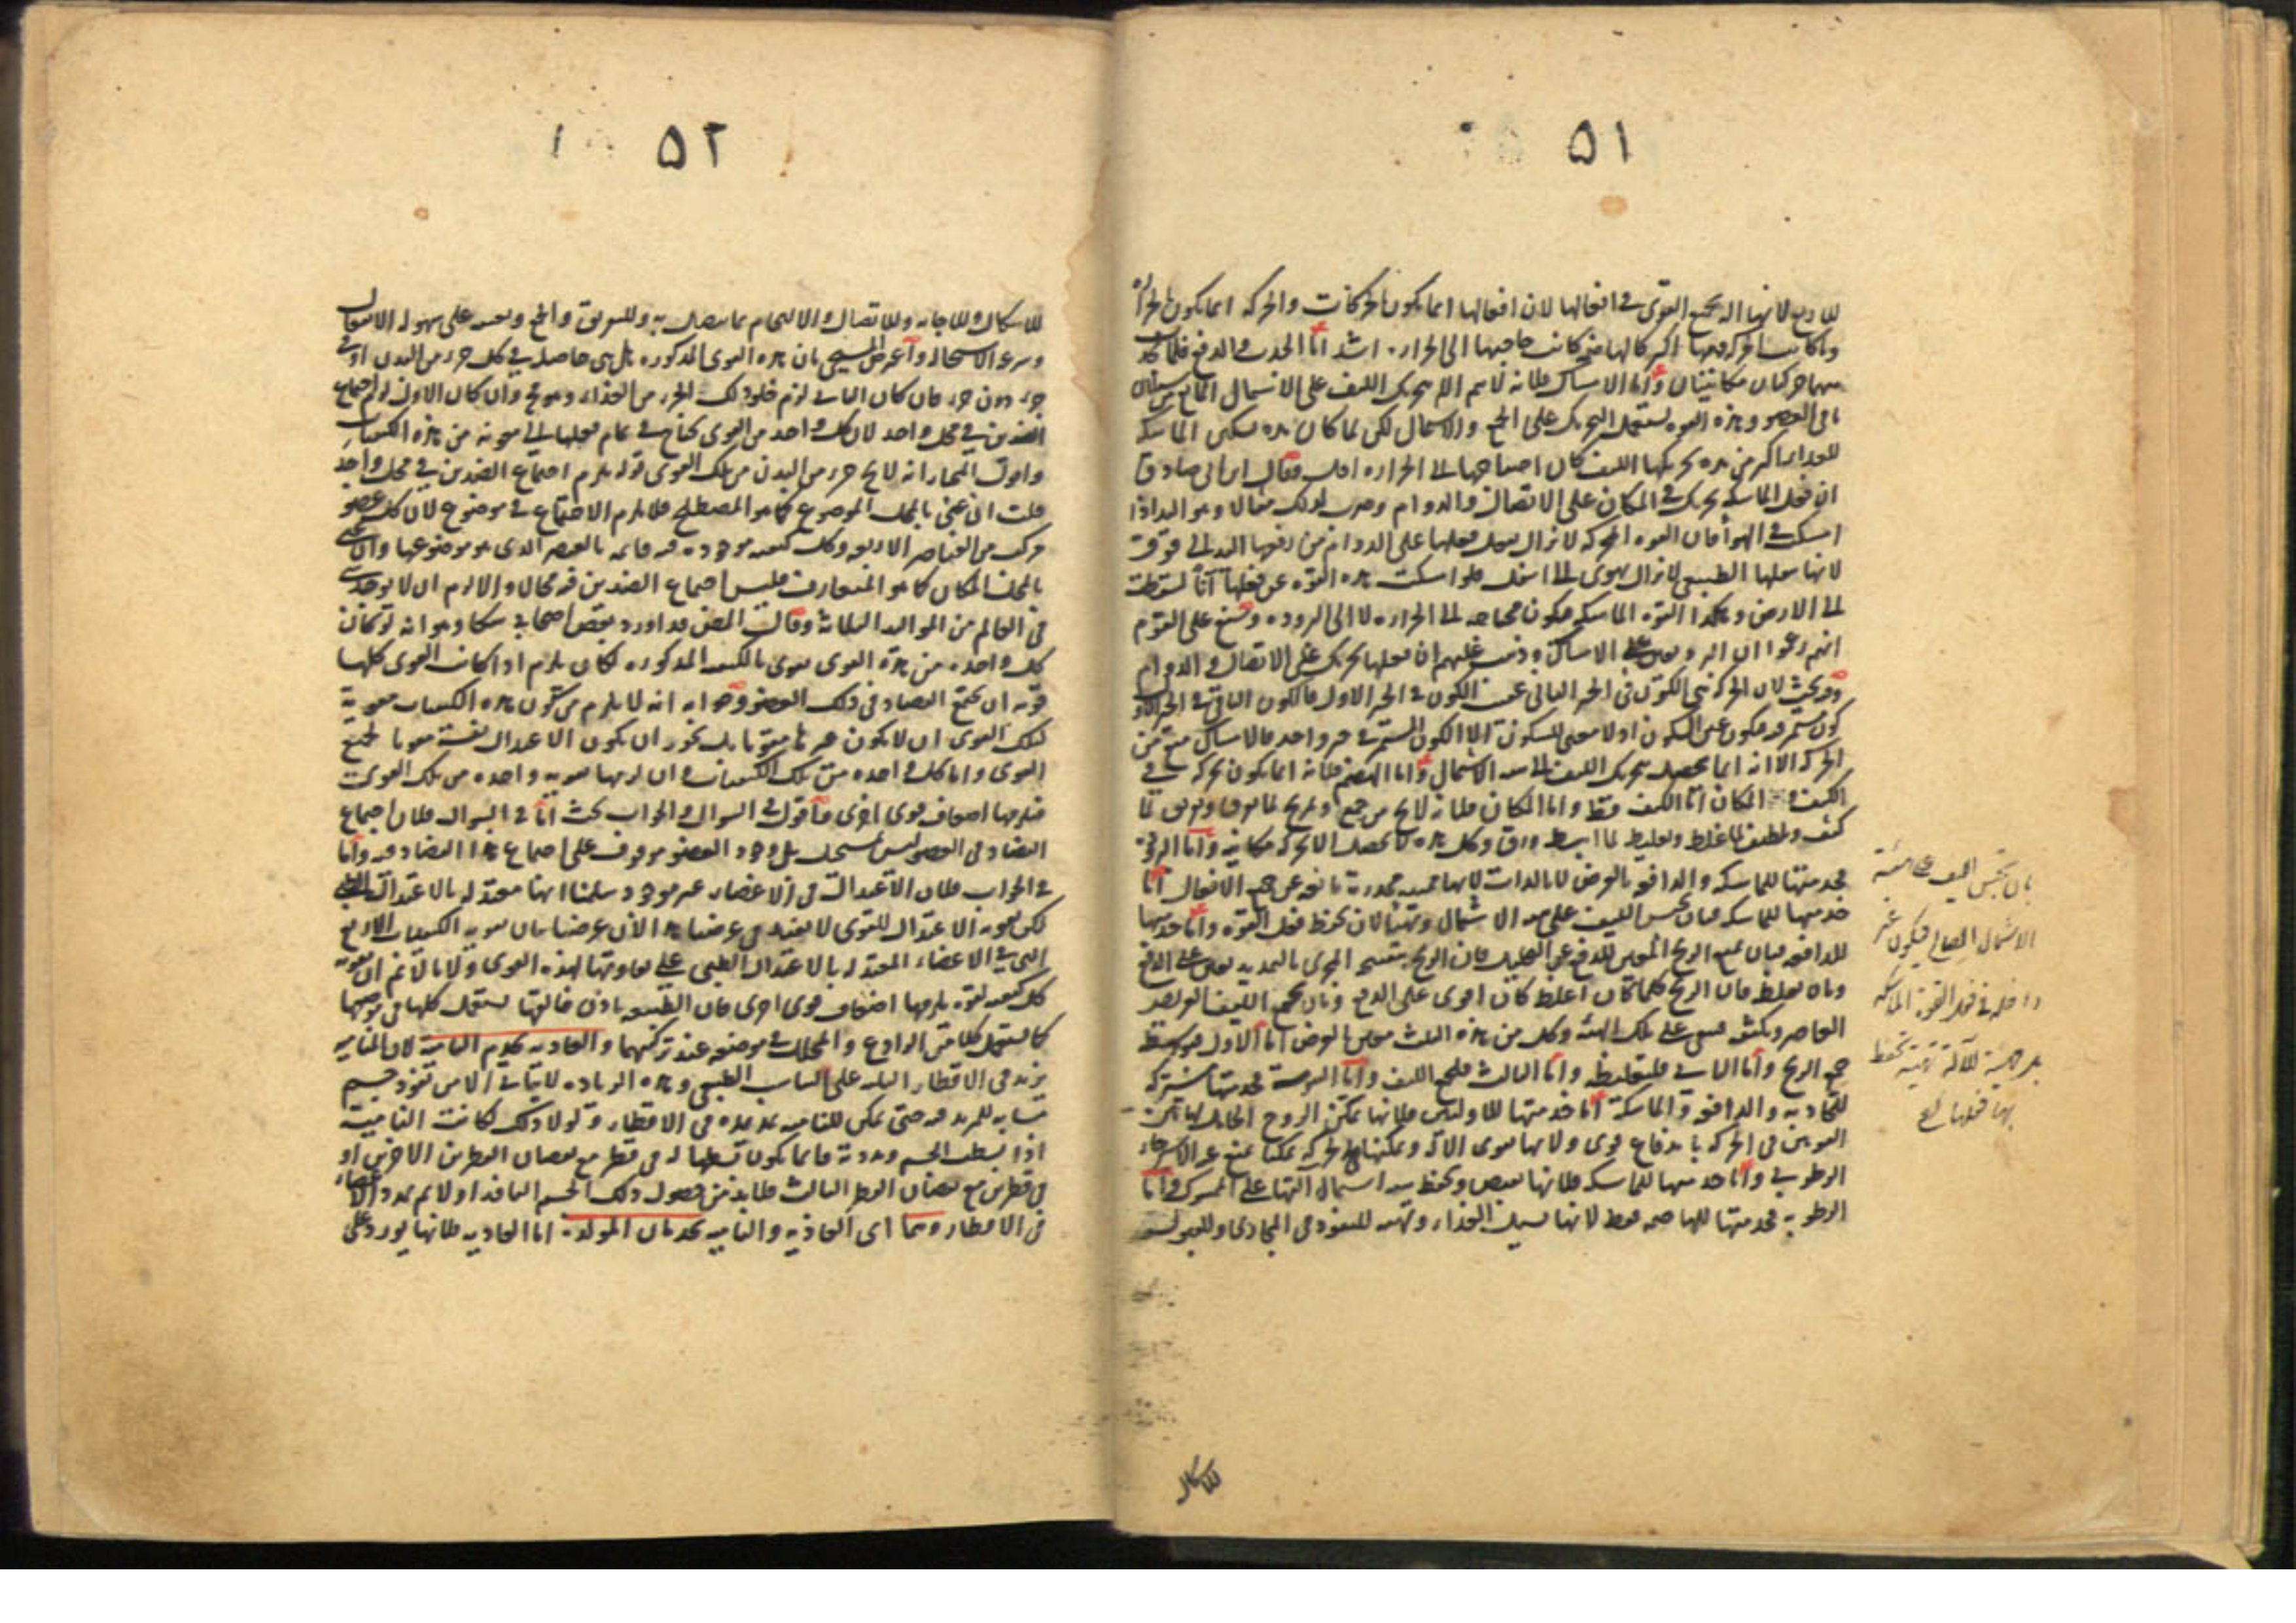 ٥١
لانها آلة جميع القوى في افعالها لان افعالها انما يكون بالحركات والحركة انما يكون بالحرارة
كانت حاجتها الى الحرارة اشد اما الجذب والدفع فلما
حركتان مكانيتان واما الامساك فلانه لا يتم الا بتحريك الليف على الاشتمال المانع من سيلان
ما في العضو وهذه القوة تستعمل التحريك على الجمع والاشتمال لكن لما كان مدة تسكين الماسكة
اكثر من مدة تحريكها الليف كان احتياجها الى الحرارة اقل وقال ابن ابي صادق
ان فعل الماسكة تحريك في المكان على الاتصال والدوام وضرب لذلك مثالا وهو اليد اذا
امسكت في الهوا فان القوة المحركة لا تزال تفعل فعلها على الدوام من رفعها اليد الى فوق
لانها بثقلها الطبيعي لا تزال تهوى الى اسفل فلو امسكت هذه القوة عن فعلها آنا لسقطت
الى الارض وهكذا القوة الماسكة فيكون محتاجة الى الحرارة لا الى البرودة وشنع على القوم
انهم زعموا ان البرد يعين على الامساك وذهب عليهم ان فعلها تحريك على الاتصال والدوام
وفيه بحث لان الحركة هي الكون في الحيز الثاني عقيب الكون في الحيز الاول فالكون الباقي في الحيز الاول
كون مستمر فيكون عين السكون اذ لا معنى للسكون الا الكون المستمر في حيز واحد فالامساك منع من
الحركة الا انه انما يحصل بتحريك الليف الى هيئة الاشتمال واما الهضم فلانه انما يكون بحركة في
الكيف والمكان اما الكيف فقط واما المكان فلانه لا يخ من جمع وتفريق لما
كثف وتلطيف لما غلظ وتغليظ لما رق وكل هذه لا يحصل الا بحركة مكانية واما البرودة
فخدمتها للماسكة والدافعة بالعرض لا بالذات لانها مميتة مخدرة مانعة عن جميع الافعال اما
خدمتها للماسكة فبان يحبس الليف على هيئة الاشتمال وتهيئا لان يحفظ فعل القوة واما خدمتها
للدافعة فبان يمنع الريح المعين للدفع عن التحليل فان الريح يتفسح المجرى بالتمديد يعين على الدفع
وبان يغلظ فان الريح كلما كان اغلظ كان اقوى على الدفع وبان يجمع الليف العريض
العاصر ويكثفه فيبقى على تلك الهيئة وكل من هذه الثلث معين بالعرض اما الاول
جمع الريح واما الثاني فلتغليظه واما الثالث فلجمع الليف واما اليبوسة فخدمتها مشتركة
للجاذبة والدافعة والماسكة اما خدمتها للاوليين فلانها تمكن الروح الحامل لهاتين
القوتين في الحركة باندفاع قوى ولانها تقوى الآلة وتمكنها في الحركة تمكنا يمنع عنه الاسترخاء
الرطوبي واما خدمتها للماسكة فلانها تقبض وتحفظ هيئة اشتمال آلتها على الممسوك واما
الرطوبة فخدمتها للهاضمة فقط لانها تسيل الغذاء وتهيئه للنفوذ في المجارى وللقبول
بان يحبس الليف على هيئة
الاشتمال الصالح فيكون غير
داخلة في فعل القوة الماسكة
بل هيئة للآلة تهيئة تحفظ
بها فعلها
للاشكال
٥٢
للاشكال وللاجابة وللاتصال والالتحام بما يتصل به وللتفريق والجمع ويعين على سهولة الانفعال
وسرعة الاستحالة واعترض المسيحي بان هذه القوى المذكورة هل هي حاصلة في كل جزء من البدن او في
جزء دون جزء فان كان الثاني لزم خلو ذلك الجزء من الغذاء وهو مح وان كان الاول لزم اجتماع
الضدين في محل واحد لان كل واحد من القوى محتاج في تمام فعلها الى معونة من هذه الكيفيات
واقول المختار انه لا يخ جزء من البدن من تلك القوى قوله يلزم اجتماع الضدين في محل واحد
قلت ان عنى بالمحل الموضوع كما هو المصطلح فلا يلزم الاجتماع في موضوع لان كل عضو
مركب من العناصر الاربعة وكل كيفية موجودة فيه قائمة بالعنصر الذى هو موضوعها وان عنى
بالمحل المكان كما هو المتعارف فليس اجتماع الضدين فيه محال والا لزم ان لا يوجد شيء
في العالم من المواليد الثلاثة وقال المص قد اورد بعض اصحابي شكا وهو انه لو كان
كل واحدة من هذه القوى تقوى بالكيفية المذكورة لكان يلزم اذا كانت القوى كلها
قوية ان يجتمع التضاد في ذلك العضو وجوابه انه لا يلزم من كون هذه الكيفيات مقوية
لتلك القوى ان لا يكون غيرها مقويا بل يجوز ان يكون الاعتدال نفسه مقويا لجميع
القوى واما كل واحدة من تلك الكيفيات وان لزمها تقوية واحدة من تلك القوى
فيلزمها اضعاف قوى اخرى فاقول في السؤال والجواب بحث اما في السؤال فلان اجتماع
التضاد في العضو ليس بمستحيل بل وجود العضو موقوف على اجتماع هذا التضاد فيه واما
في الجواب فلان الاعتدال في الاعضاء غير موجود سلمنا انها معتدلة بالاعتدال الطبي
لكن تقوية الاعتدال للقوى لا يفيد في غرضنا هذا لان غرضنا بيان تقوية الكيفيات الاربع
التي في الاعضاء المعتدلة بالاعتدال الطبي على معاونتها لهذه القوى ولانا لا نم ان تقوية
كل كيفية لقوة يلزمها اضعاف قوى اخرى فان الطبيعة باذن خالقها تستعمل كلها في موضعها
كما تستعمل كلا من الرادع والمحلل في موضعه عند تركيبهما والغاذية تخدم النامية لان النامية
تزيد في الاقطار الثلثة على التناسب الطبيعي وهذه الزيادة لا يتاتى الا من نفوذ جسم
متشابه للمزيد فيه حتى يمكن للنامية تمديده في الاقطار ولولا ذلك لكانت النامية
اذا بسطت الجسم ومددته فانما يكون بسطها له في قطر مع نقصان القطرين الاخرين او
في قطرين مع نقصان القطر الثالث فلا بد من حصول ذلك الجسم النافذ اولا ثم تمدد الاعضاء
في الاقطار وهما اى الغاذية والنامية تخدمان المولدة اما الغاذية فلانها تورد على